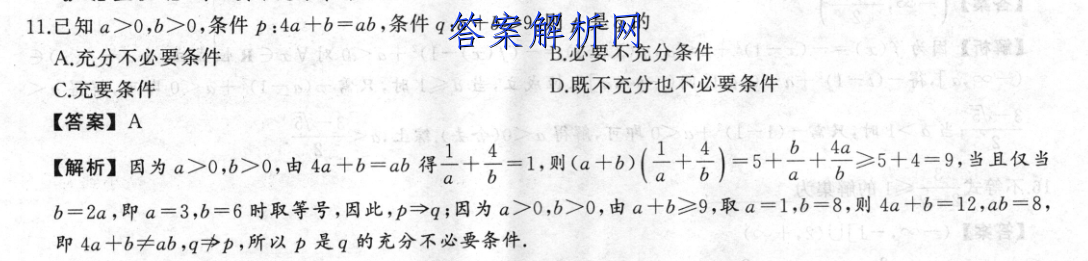 11.已知 a>0,b>0,条件 p:4a+b=ab,条件 q:a+b≥9,则 p 是 q 的
答案解析网
A.充分不必要条件 B.必要不充分条件
C.充要条件 D.既不充分也不必要条件
【答案】A
【解析】因为 a>0,b>0,由 4a+b=ab 得 1/a+4/b=1,则(a+b)(1/a+4/b)=5+b/a+4a/b≥5+4=9,当且仅当
b=2a,即 a=3,b=6 时取等号,因此,p⇒q;因为 a>0,b>0,由 a+b≥9,取 a=1,b=8,则 4a+b=12,ab=8,
即 4a+b≠ab,q⇏p,所以 p 是 q 的充分不必要条件.